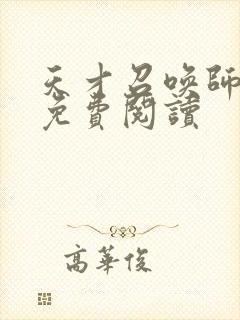 天才召喚師
免費閱讀
高華俊